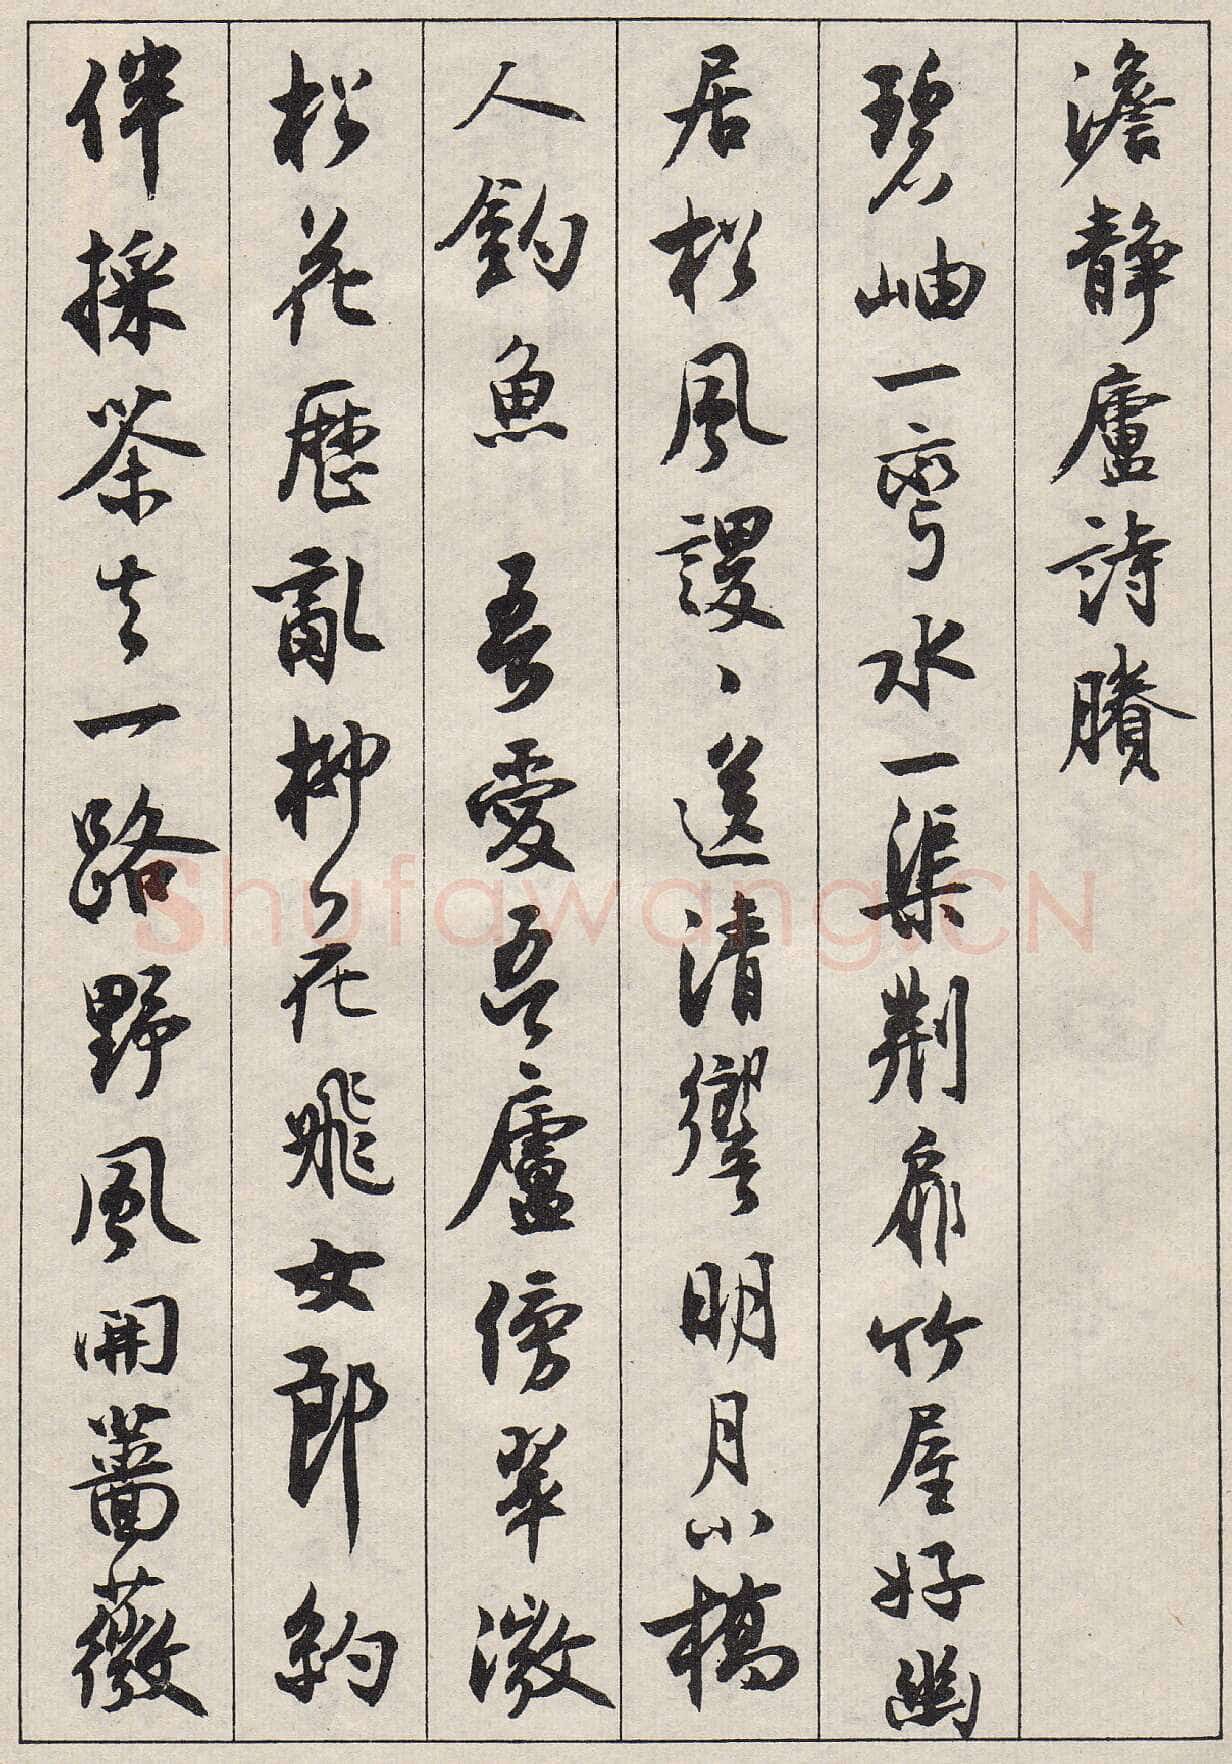 澹靜廬詩賸
碧岫一彎水一渠荆扉竹屋好幽
居松風謖、送清響明月小橋
人釣魚 吾愛吾廬傍翠微
松花歷亂柳花飛女郎約
伴採茶去一路野風開薔薇
Shufawang.CN